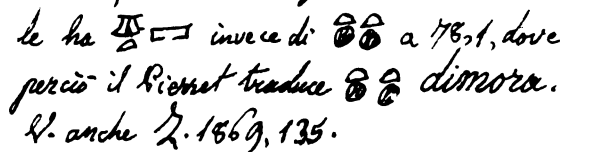 le ha 𓉺𓏏𓉐 invece di 𓏏𓊖𓏏𓊖 a 78,1, dove
perciò il Pierret traduce 𓏏𓊖𓏏𓊖 dimora.
V. anche Z. 1869, 135.